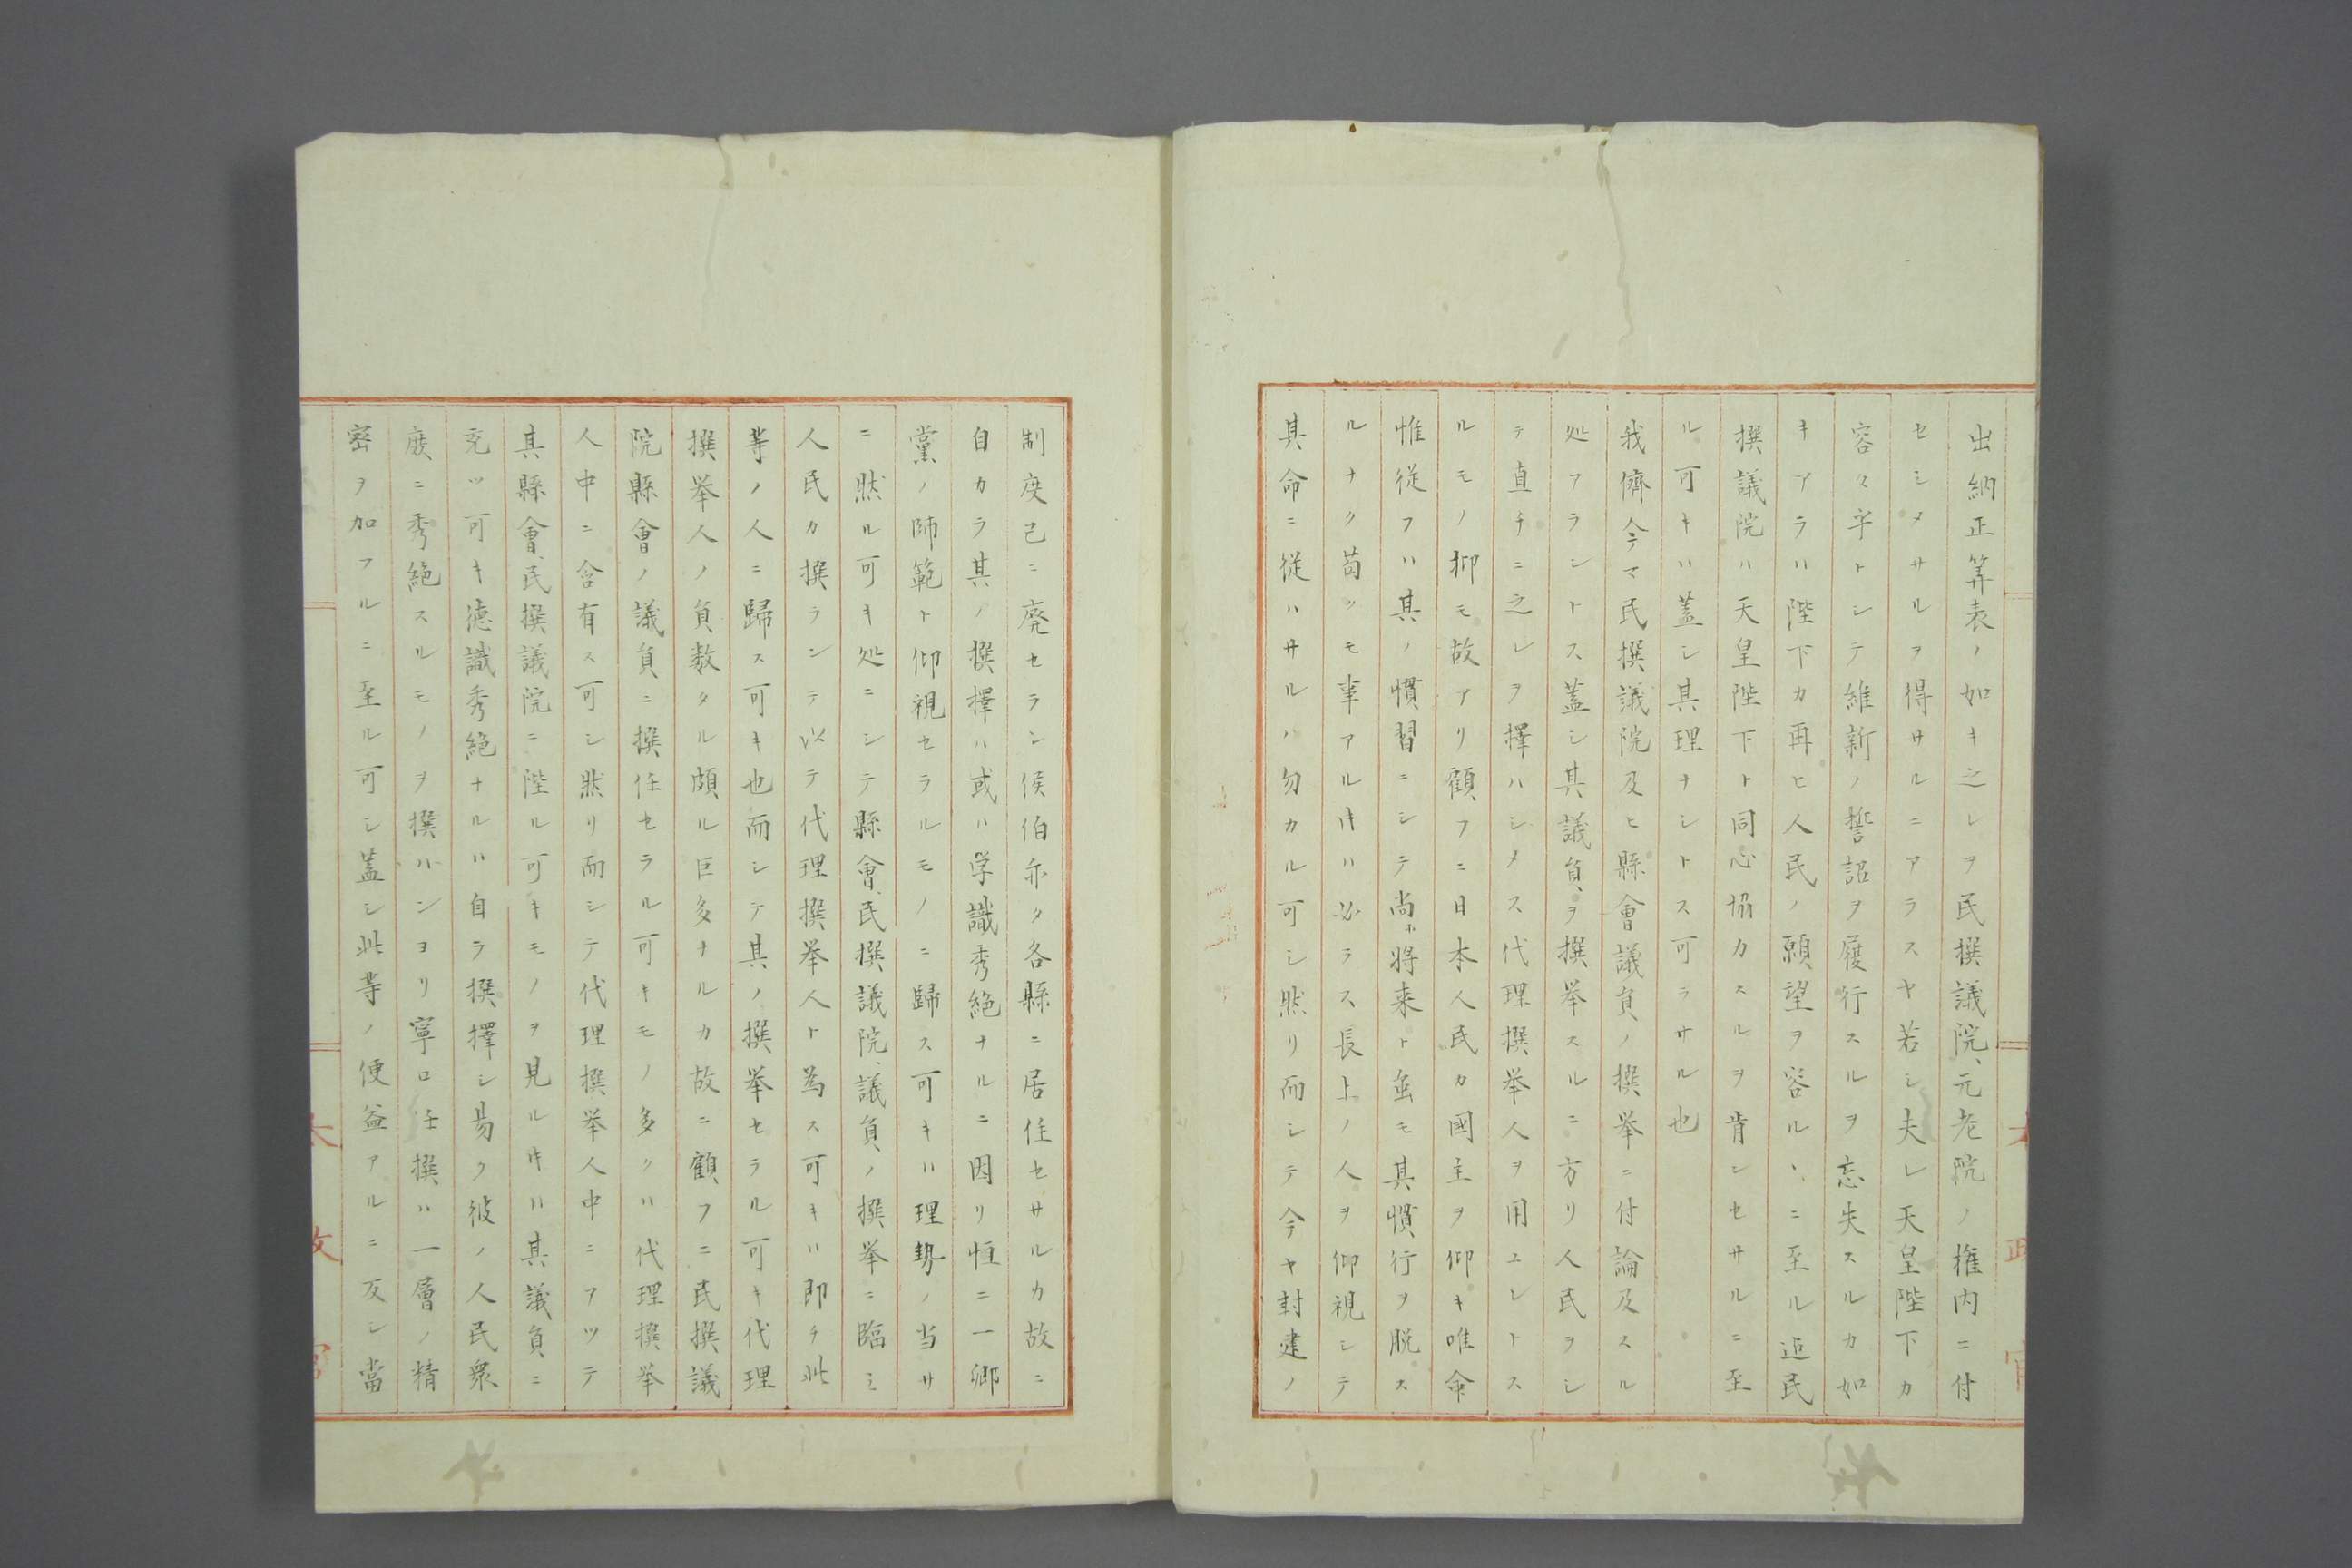 出納正算表ノ如キ之レヲ民撰議院、元老院ノ権内ニ付
セシメサルヲ得サルニアラスヤ若シ夫レ天皇陛下カ
容々乎トシテ維新ノ誓詔ヲ履行スルヲ忘失スルカ如
キアラハ陛下カ再ヒ人民ノ願望ヲ容ルヽニ至ル迠民
撰議院ハ天皇陛下ト同心協力スルヲ肯ンセサルニ至
ル可キハ蓋シ其理ナシトス可ラサル也
我儕今マ民撰議院及ヒ縣會議員ノ撰挙ニ付論及スル
処アラントス蓋シ其議員ヲ撰挙スルニ方リ人民ヲシ
テ直チニ之レヲ擇ハシメス代理撰挙人ヲ用エントス
ルモノ抑モ故アリ顧フニ日本人民カ國主ヲ仰キ唯命
惟従フハ其ノ慣習ニシテ尚ホ将来ト虽モ其慣行ヲ脱ス
ルナク苟クモ事アル片ハ必ラス長上ノ人ヲ仰視シテ
其命ニ従ハサルハ勿カル可シ然リ而シテ今ヤ封建ノ
制度已ニ廃セラン侯伯亦タ各縣ニ居住セサルカ故ニ
自カラ其ノ撰擇ハ或ハ学識秀絶ナルニ因リ恒ニ一郷
黨ノ師範ト仰視セラルモノニ歸ス可キハ理勢ノ当サ
ニ然ル可キ処ニシテ縣會、民撰議院議員ノ撰挙ニ臨ミ
人民カ撰ランテ以テ代理撰挙人ト為ス可キハ即チ此
等ノ人ニ歸ス可キ也而シテ其ノ撰挙セラル可キ代理
撰挙人ノ員数タル頗ル巨多ナルカ故ニ顧フニ民撰議
院縣會ノ議員ニ撰任セラル可キモノ多クハ代理撰挙
人中ニ含有ス可シ然リ而シテ代理撰挙人中ニアツテ
其縣會、民撰議院ニ陞ル可キモノヲ見ル片ハ其議員ニ
充ツ可キ徳識秀絶ナルハ自ラ撰擇シ易ク彼ノ人民衆
庶ニ秀絶スルモノヲ撰ハンヨリ寧ロ壬撰ハ一層ノ精
密ヲ加フルニ至ル可シ蓋シ此等ノ便益アルニ反シ當
太政官